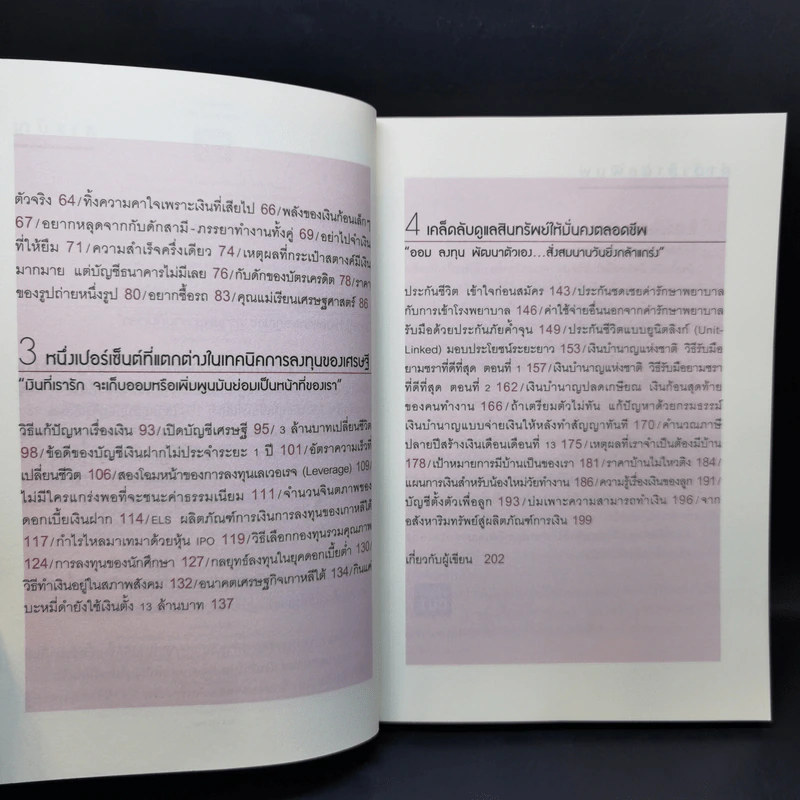 ตัวจริง 64/ทิ้งความคาใจเพราะเงินที่เสียไป 66/พลังของเงินก้อนเล็กๆ
67/อยากหลุดจากกับดักสามี-ภรรยาทำงานทั้งคู่ 69/อย่าไปจำเงิน
ที่ให้ยืม 71/ความสำเร็จครึ่งเดียว 74/เหตุผลที่กระเป๋าสตางค์มีเงิน
มากมาย แต่บัญชีธนาคารไม่มีเลย 76/กับดักของบัตรเครดิต 78/ราคา
ของรูปถ่ายหนึ่งรูป 80/อยากซื้อรถ 83/คุณแม่เรียนเศรษฐศาสตร์ 86
3 หนึ่งเปอร์เซ็นต์ที่แตกต่างในเทคนิคการลงทุนของเศรษฐี
"เงินที่เรารัก จะเก็บออมหรือเพิ่มพูนมันย่อมเป็นหน้าที่ของเรา"
วิธีแก้ปัญหาเรื่องเงิน 93/เปิดบัญชีเศรษฐี 95/3 ล้านบาทเปลี่ยนชีวิต
98/ข้อดีของบัญชีเงินฝากไม่ประจำระยะ 1 ปี 101/อัตราความเร็วที่
เปลี่ยนชีวิต 106/สองโฉมหน้าของการลงทุนเลเวอเรจ (Leverage) 109/
ไม่มีใครแกร่งพอที่จะชนะค่าธรรมเนียม 111/จำนวนจินตภาพของ
ดอกเบี้ยเงินฝาก 114/ELS ผลิตภัณฑ์การเงินการลงทุนของเกาหลีใต้
117/กำไรไหลมาเทมาด้วยหุ้น IPO 119/วิธีเลือกกองทุนรวมคุณภาพ
124/การลงทุนของนักศึกษา 127/กลยุทธ์ลงทุนในยุคดอกเบี้ยต่ำ 130/
วิธีทำเงินอยู่ในสภาพสังคม 132/อนาคตเศรษฐกิจเกาหลีใต้ 134/กินแค่
บะหมี่ดำยังใช้เงินตั้ง 13 ล้านบาท 137
4 เคล็ดลับดูแลสินทรัพย์ให้มั่นคงตลอดชีพ
"ออม ลงทุน พัฒนาตัวเอง...สั่งสมนานวันยิ่งกล้าแกร่ง"
ประกันชีวิต เข้าใจก่อนสมัคร 143/ประกันชดเชยค่ารักษาพยาบาล
กับการเข้าโรงพยาบาล 146/ค่าใช้จ่ายอื่นนอกจากค่ารักษาพยาบาล
รับมือด้วยประกันภัยค้ำจุน 149/ประกันชีวิตแบบยูนิตลิงก์ (Unit-
Linked) มอบประโยชน์ระยะยาว 153/เงินบำนาญแห่งชาติ วิธีรับมือ
ยามชราที่ดีที่สุด ตอนที่ 1 157/เงินบำนาญแห่งชาติ วิธีรับมือยามชรา
ที่ดีที่สุด ตอนที่ 2 162/เงินบำนาญปลดเกษียณ เงินก้อนสุดท้าย
ของคนทำงาน 166/ถ้าเตรียมตัวไม่ทัน แก้ปัญหาด้วยกรมธรรม์
เงินบำนาญแบบจ่ายเงินให้หลังทำสัญญาทันที 170/คำนวณภาษี
ปลายปีสร้างเงินเดือนเดือนที่ 13 175/เหตุผลที่เราจำเป็นต้องมีบ้าน
178/เป้าหมายการมีบ้านเป็นของเรา 181/ราคาบ้านไม่ไหวติง 184/
แผนการเงินสำหรับน้องใหม่วัยทำงาน 186/ความรู้เรื่องเงินของลูก 191/
บัญชีตั้งตัวเพื่อลูก 193/ปมเพราะความสามารถทำเงิน 196/จาก
อสังหาริมทรัพย์สู่ผลิตภัณฑ์การเงิน 199
เกี่ยวกับผู้เขียน 202